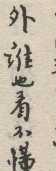 外誰也看不懂